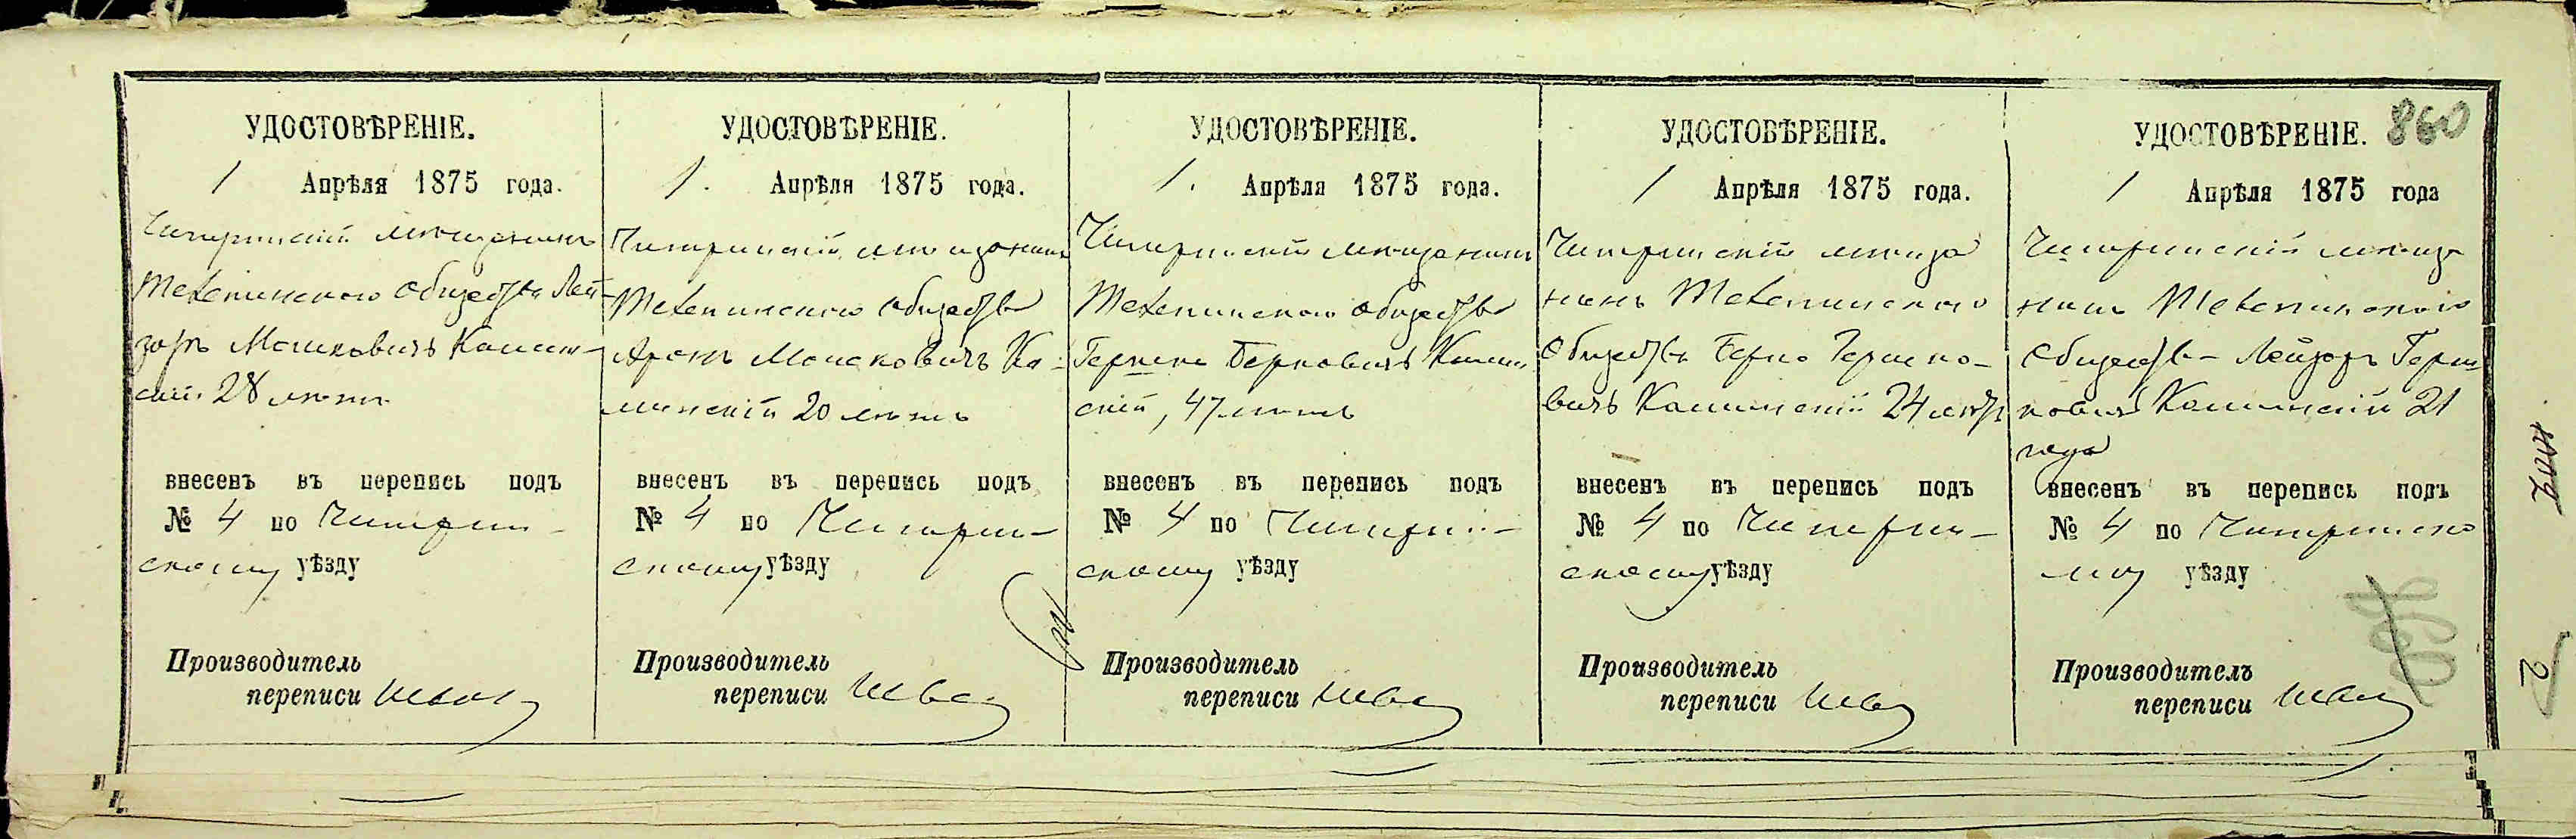 860
УДОСТОВѢРЕНІЕ.
1 Апрѣля 1875 года.
Чигиринскій мѣщанинъ
общества Лей-
зоръ Мошковичъ Камин-
скій 28 лѣтъ
внесенъ въ перепись подъ
№ 4 по Чигирин-
скому уѣзду
Производитель
переписи
УДОСТОВѢРЕНІЕ.
1. Апрѣля 1875 года.
Чигиринскій мѣщанинъ
общества
Аронъ Мошковичъ Ка-
минскій 20 лѣтъ
внесенъ въ перепись подъ
№ 4 по Чигирин-
скому уѣзду
Производитель
переписи
УДОСТОВѢРЕНІЕ.
1. Апрѣля 1875 года.
Чигиринскій мѣщанинъ
общества
Берковичъ Камин
скій, 47 лѣтъ
внесенъ въ перепись подъ
№ 4 по Чигирин-
скому уѣзду
Производитель
переписи
УДОСТОВѢРЕНІЕ.
1 Апрѣля 1875 года.
Чигиринскій мѣща
нинъ
общества Берко Гершко-
вичъ Каминскій 24 лѣтъ
внесенъ въ перепись подъ
№ 4 по Чигирин-
скому уѣзду
Производитель
переписи
УДОСТОВѢРЕНІЕ.
1 Апрѣля 1875 года
Чигиринскій мѣща
нинъ
общества Лейзоръ Герш
ковичъ Каминскій 21
года
внесенъ въ перепись подъ
№ 4 по Чигиринско
му уѣзду
Производитель
переписи
2